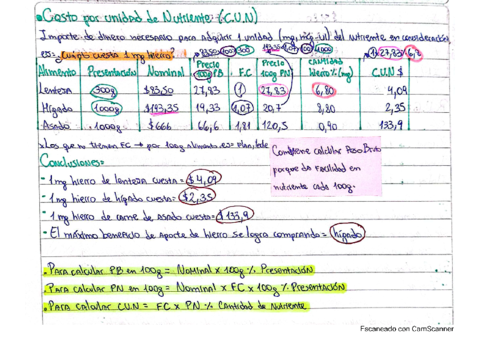 Costo por unidad de Nutriente: (C.U.N)
Importe de dinero necesario para adquirir 1 unidad (mg, mcg, ui) del Nutriente en consideración
es= ¿Cuánto cuesta 1 mg hierro? 1x27,83/6,8
Alimento Presentación Nominal Precio 100g PB F.C Precio 100g PN CANTIDAD Hierro % (mg) C.U.N $
Lenteja 300g $83,50 27,83 1 27,83 6,80 4,09
Hígado 1000g $193,35 19,33 1,07 20,7 8,80 2,35
Asado 1000g $666 66,6 1,81 120,5 0,90 133,9
Los que no tienen FC → por 100g alimento. es=
Conviene calcular Peso Bruto
porque da Facilidad en
nutriente cada 100g.
Conclusiones=
- 1 mg hierro de lenteja cuesta= $4,09
- 1 mg hierro de hígado cuesta= $2,35
- 1 mg hierro de carne de asado cuesta= $133,9
- El máximo beneficio de aporte de hierro se logra comprando= hígado
. Para calcular PB en 100g = Nominal x 100g % Presentación
. Para calcular PN en 100g = Nominal x FC x 100g % Presentación
. Para calcular C.U.N = FC x PN % Cantidad de Nutriente
Escaneado con CamScanner